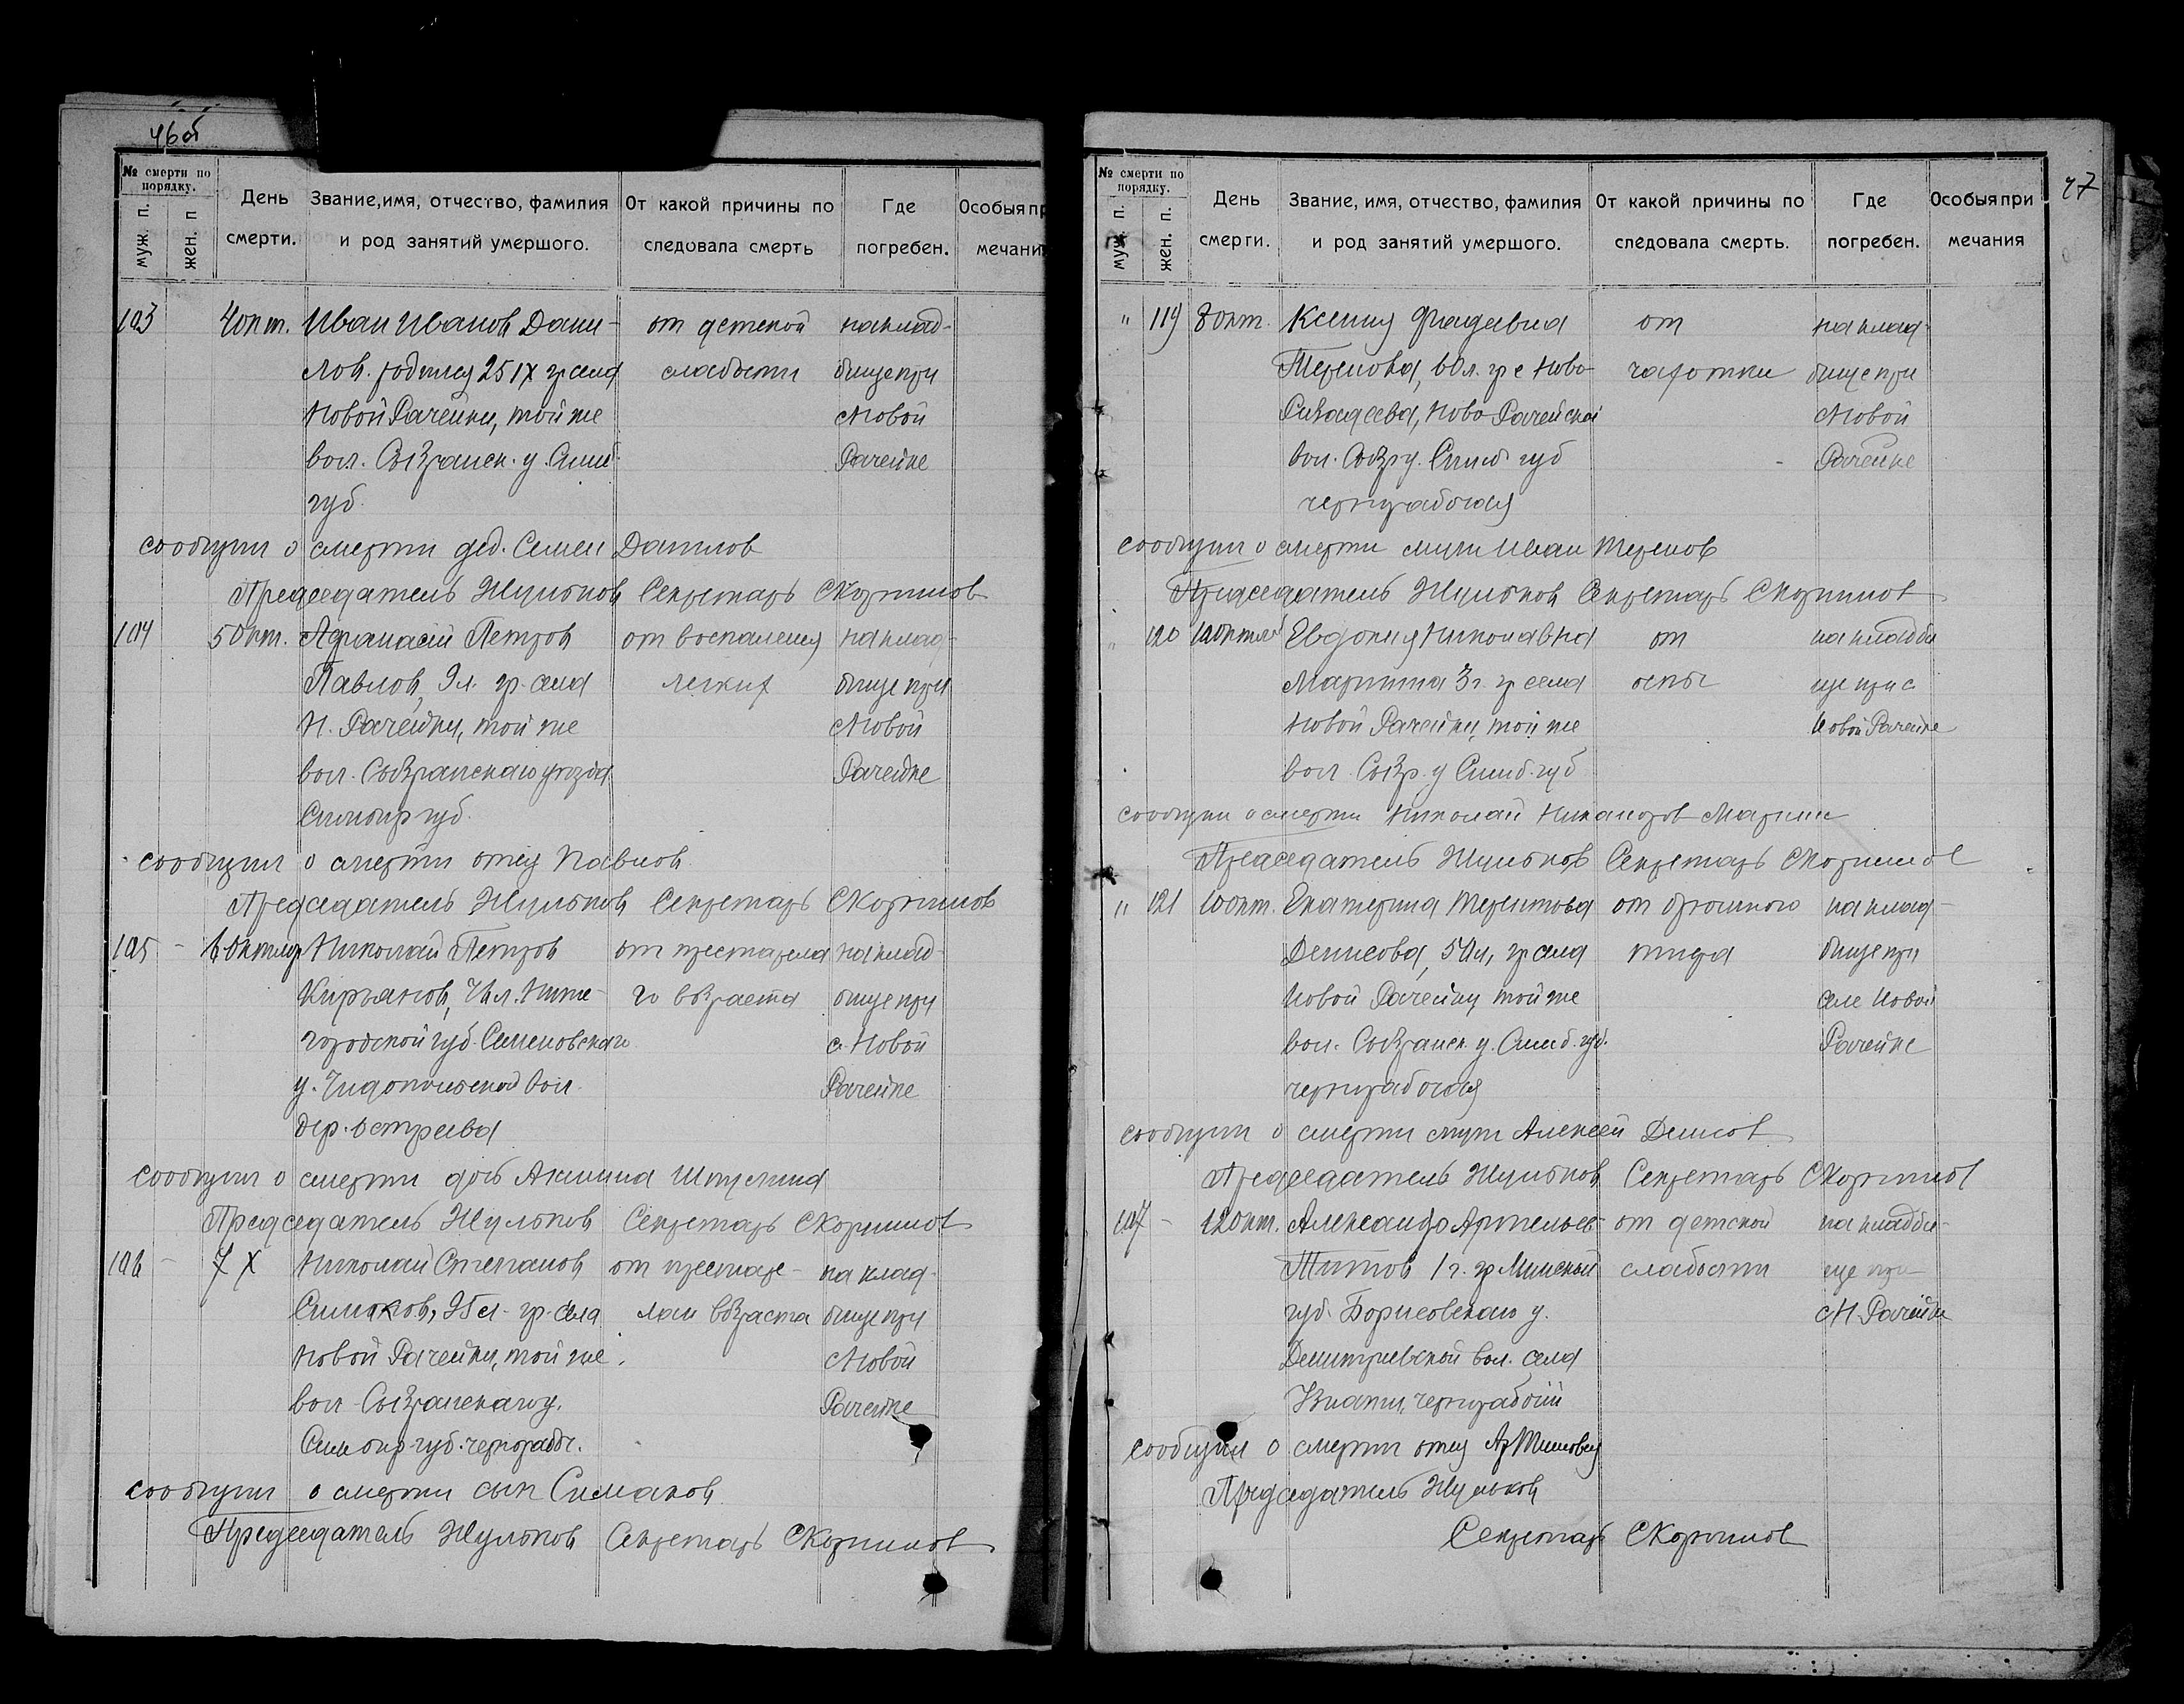 46об
№ смерти по порядку.
муж. п.
жен. п
День смерти.
Звание, имя, отчество, фамилия и род занятий умершого.
От какой причины последовала смерть
Где погребен.
Особыя при
мечани
103 4 окт. Иван Иванов Дани- от детской на клад-
лов. родился 25 IX гр села слабости бище при
Новой Рачейки, той же с Новой
вол. Сызранск. у. Симб. Рачейке
губ.
сообщил о смерти дед. Семен Данилов
Председатель Жульков Секретарь Скоринов
104 5 Окт. Афанасий Петров от воспаления на клад-
Павлов, 9 л. гр. села легких бище при
Н. Рачейки, той же с Новой
вол. Сызранскаго уезда Рачейке
Симбир губ.
сообщил о смерти отец Павлов
Председатель Жульков Секретарь Скоринов
105 - 6 Октяб Николай Петров от престарела на клад-
Кирьянов, л. Ниже- го возраста бище при
городской губ. Семеновскаго с. Новой
у. вол. Рачейке
дер.
сообщил о смерти дочь Акулина
Председатель Жульков Секретарь Скоринов
106 - 7 X Николай Степанов от престаре- на клад-
Симаков, 95 л. гр. села лаи возраста бище при
Новой Рачейки, той же с Новой
вол Сызранскаго у. Рачейке
Симбир губ. чернорабоч.
сообщил о смерти сын Симаков
Председатель Жульков Секретарь Скоринов
47
№ смерти по порядку.
муж. п.
жен. п.
День смерти.
Звание, имя, отчество, фамилия и род занятий умершого.
От какой причины последовала смерть.
Где погребен.
Особыя при
мечания
" 119 8 окт. Ксения от на клад-
60 л. гр с Ново чахотки бище при
Ново-Рачейской с Новой
вол. Сызр у. Симб губ Рачейке
чернорабочая
сообщил о смерти муж Иван
Председатель Жульков Секретарь Скоринов
" 120 10 октяб Евдокия Николавна от на кладби
Маркина 3 г. гр села оспы ще при с
Новой Рачейки, той же Новой Рачейке
вол. Сызр. у Симб. губ
сообщил о смерти Николай Никаноров Маркин
Председатель Жульков Секретарь Скоринов
" 121 10 окт. Екатерина Терентьева от брюшного на клад-
Денисова, 50 л, гр села тифа бище при
Новой Рачейки, той же селе Новой
вол. Сызранск. у. Симб. губ. Рачейке
чернорабочая
сообщил о смерти муж Алексей Денисов
Председатель Жульков Секретарь Скоринов
107 - 12 окт. Александр Артемьев от детской на кладби-
Титов 1 г. гр Минской слабости ще при
губ. Борисовскаго у. с Н. Рачейке
вол. села
чернорабочий
сообщил о смерти отец
Председатель Жульков
Секретарь Скоринов